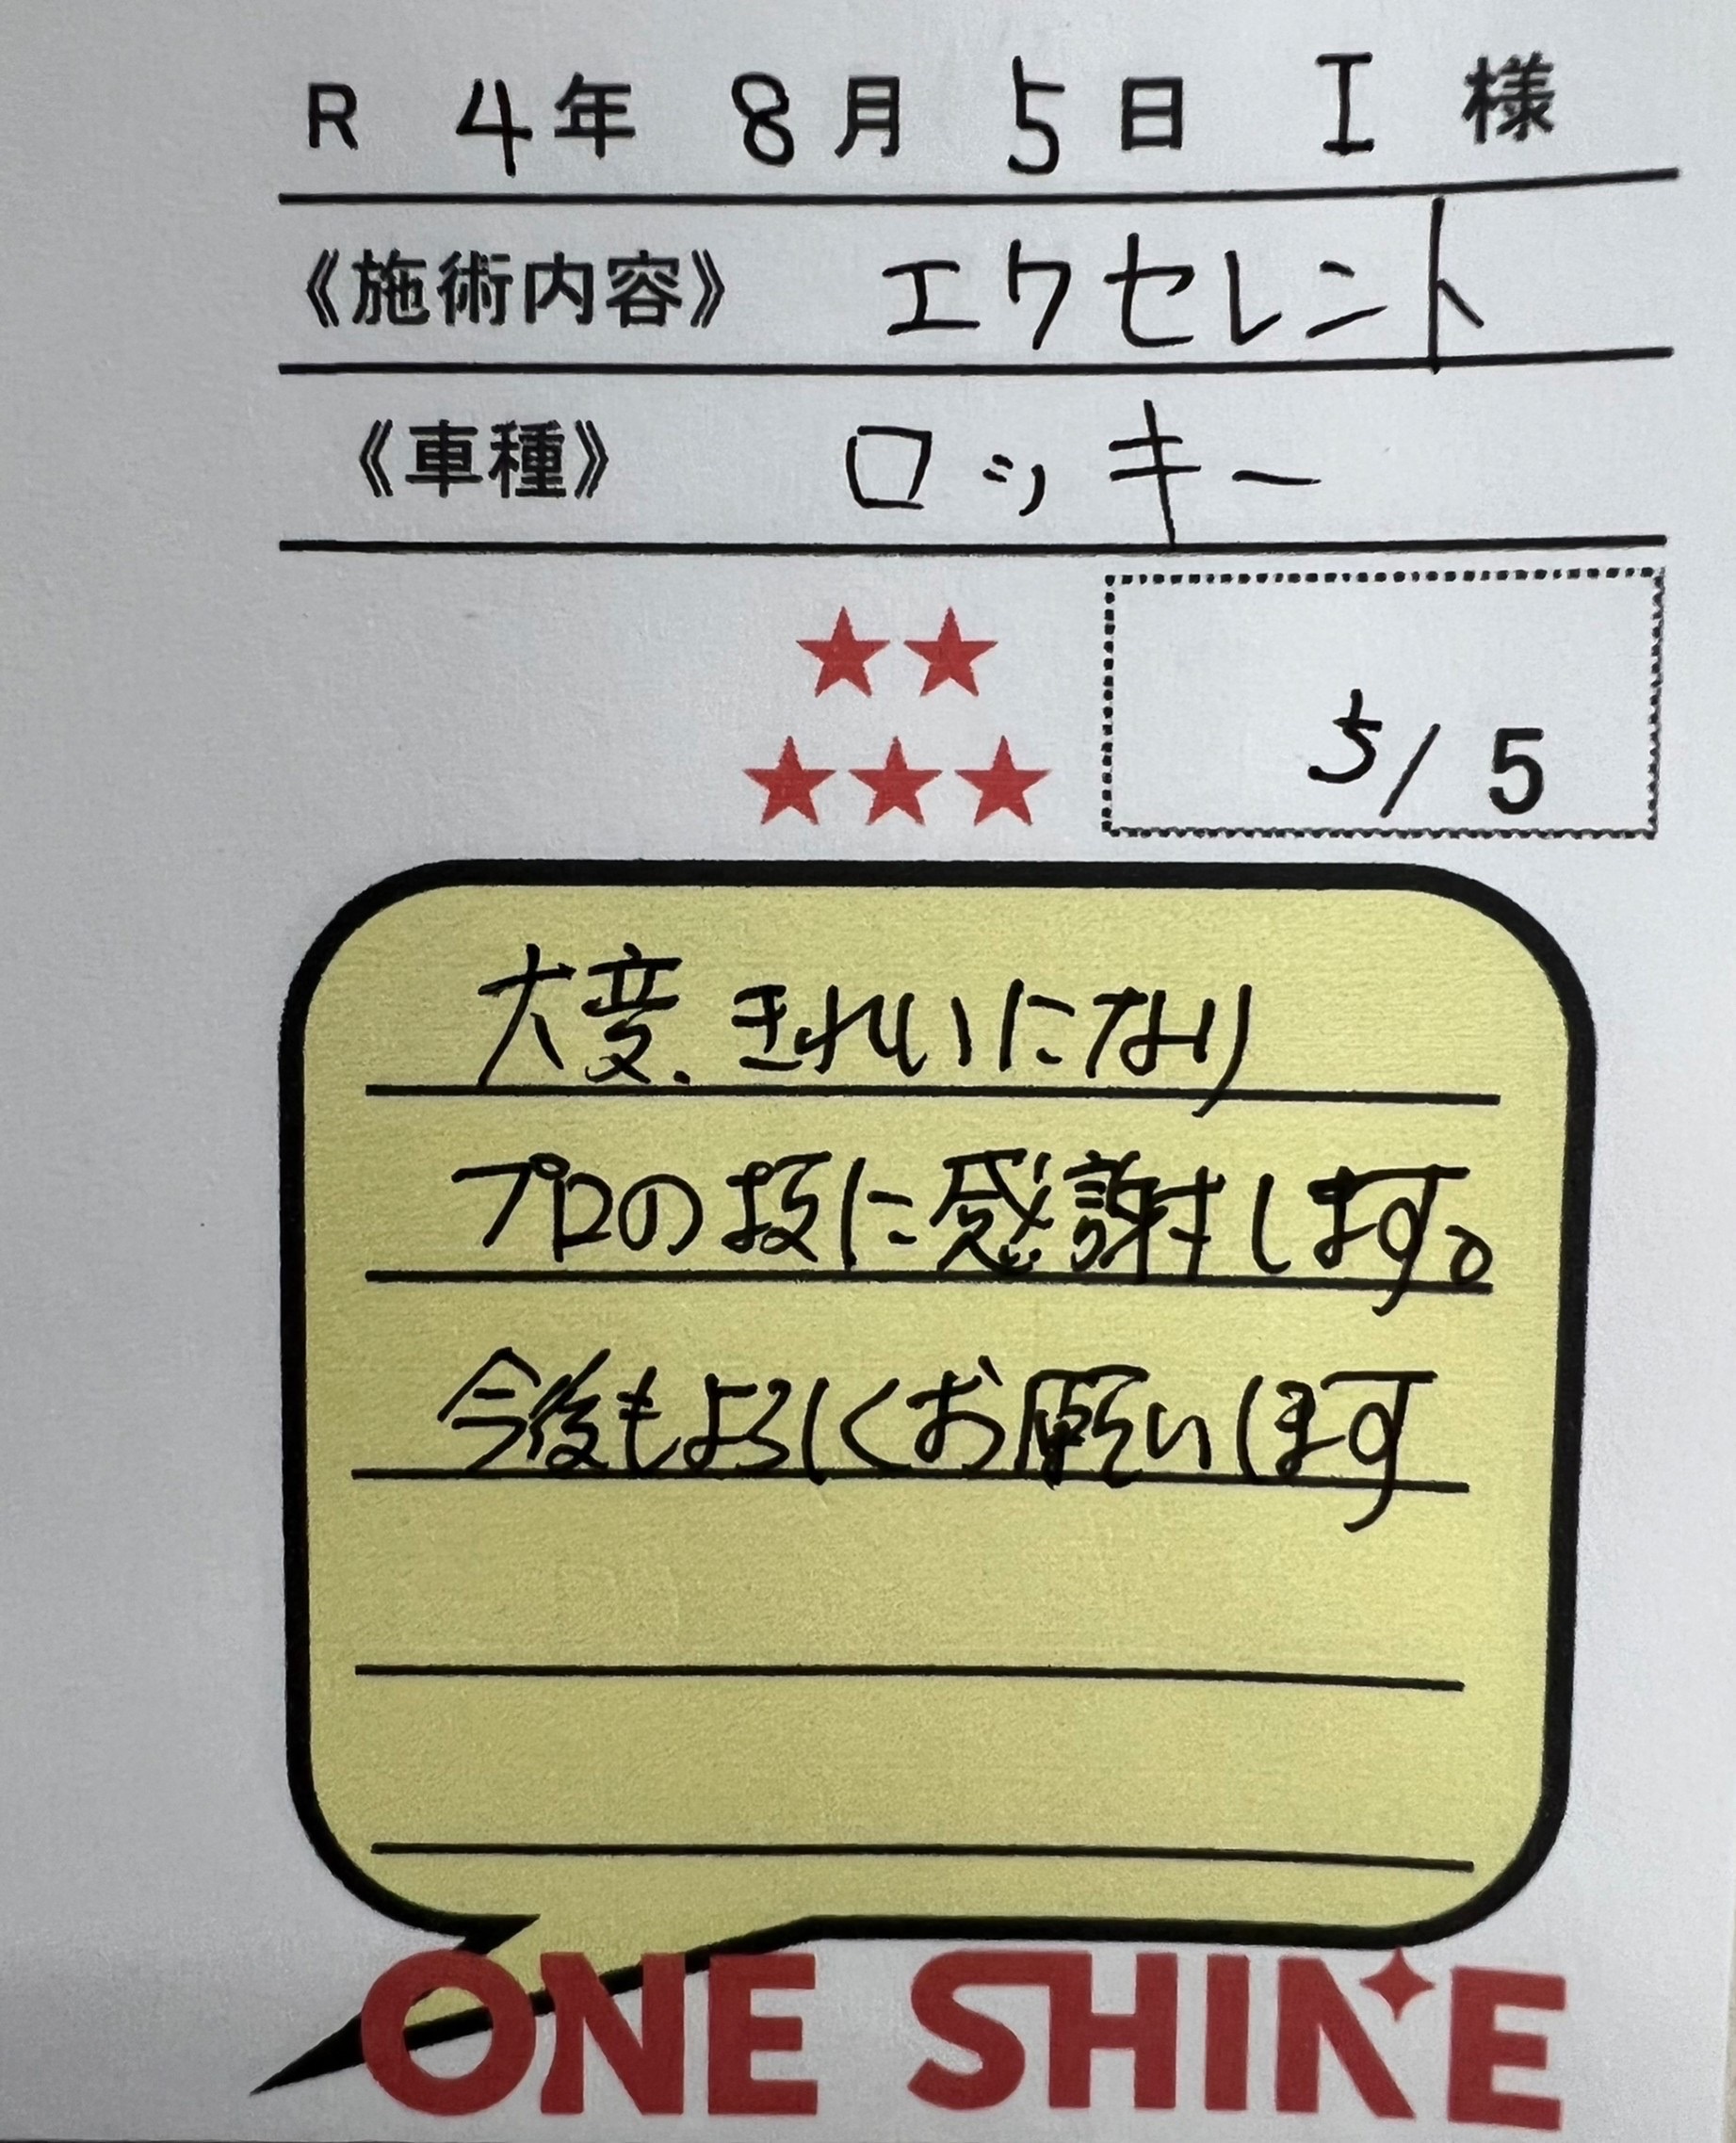 R 4年 8月 5日 I 様
《施術内容》 エクセレント
《車種》 ロッキー
5/5
大変、きれいになり
プロの技に感謝します。
今後もよろしくお願いします
ONE SHINE